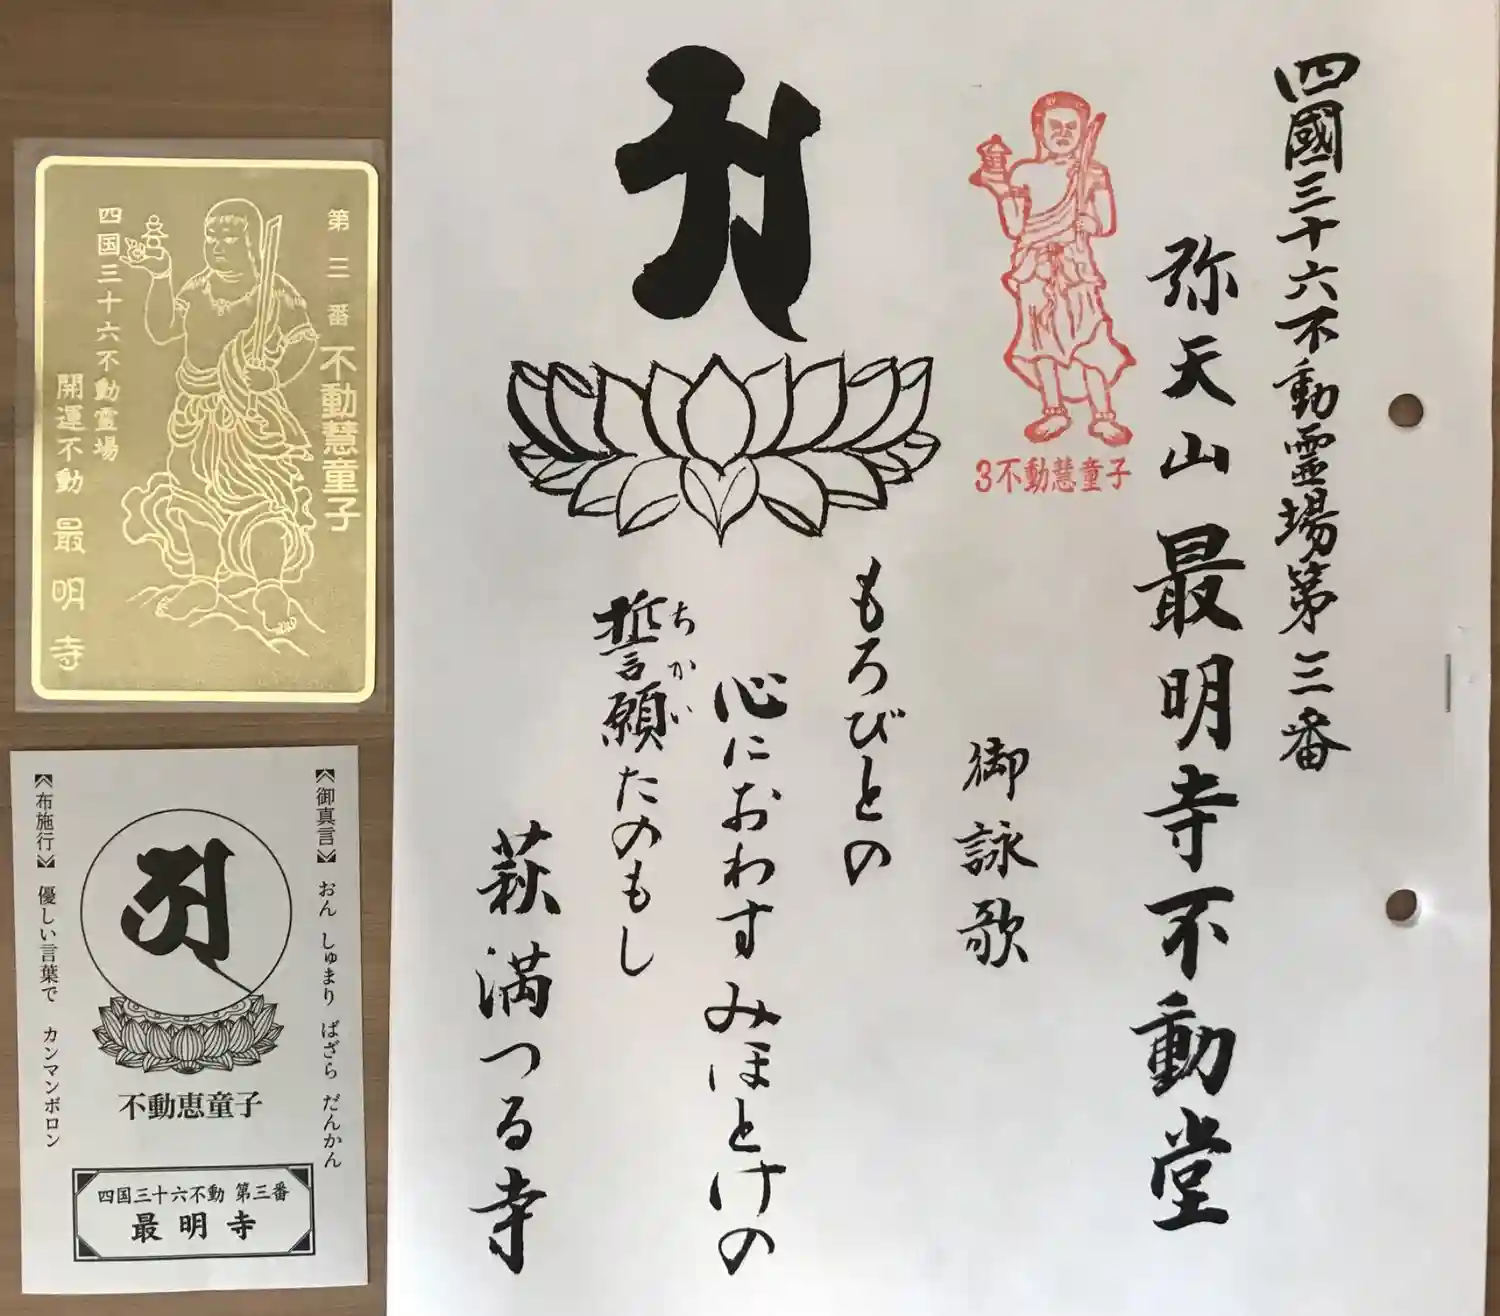 四國三十六不動霊場第三番
弥天山最明寺不動堂
3不動慧童子
御詠歌
もろびとの
心におわすみほとけの
誓願たのもし
ちかい
萩満つる寺
第三番 不動慧童子
四国三十六不動霊場
開運不動 最明寺
《御真言》 おん しゅまり ばざら だんかん
《布施行》 優しい言葉で カンマンボロン
不動恵童子
四国三十六不動 第三番
最明寺